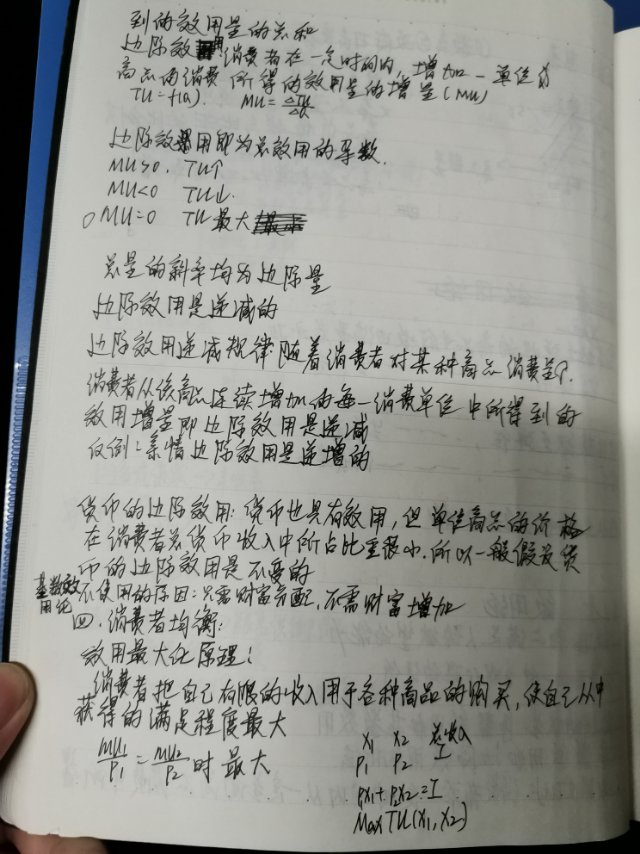 到的效用量的总和
边际效用 消费者在一定时间内,增加一单位
商品的消费所得的效用量的增量(MU)
TU=f(Q). MU=△TU/△Q
边际效用即为总效用的导数.
MU>0. TU↑
MU<0 TU↓
MU=0 TU最大
总量的斜率均为边际量
边际效用是递减的
边际效用递减规律:随着消费者对某种商品消费量↑.
消费者从该商品连续增加的每一消费单位中所得到的
效用增量即边际效用是递减
反例:亲情边际效用是递增的
货币的边际效用:货币也具有效用,但单位商品的价格
在消费者总货币收入中所占比重很小.所以一般假设货
币的边际效用是不变的
基数效用论 不使用的原因:只需财富分配,不需财富增加
四.消费者均衡:
效用最大化原理:
消费者把自己有限的收入用于各种商品的购买,使自己从中
获得的满足程度最大
MU1/P1=MU2/P2时最大
X1 X2 总收入
P1 P2 I
PX1+P2X2=I
MaxTU(X1,X2)